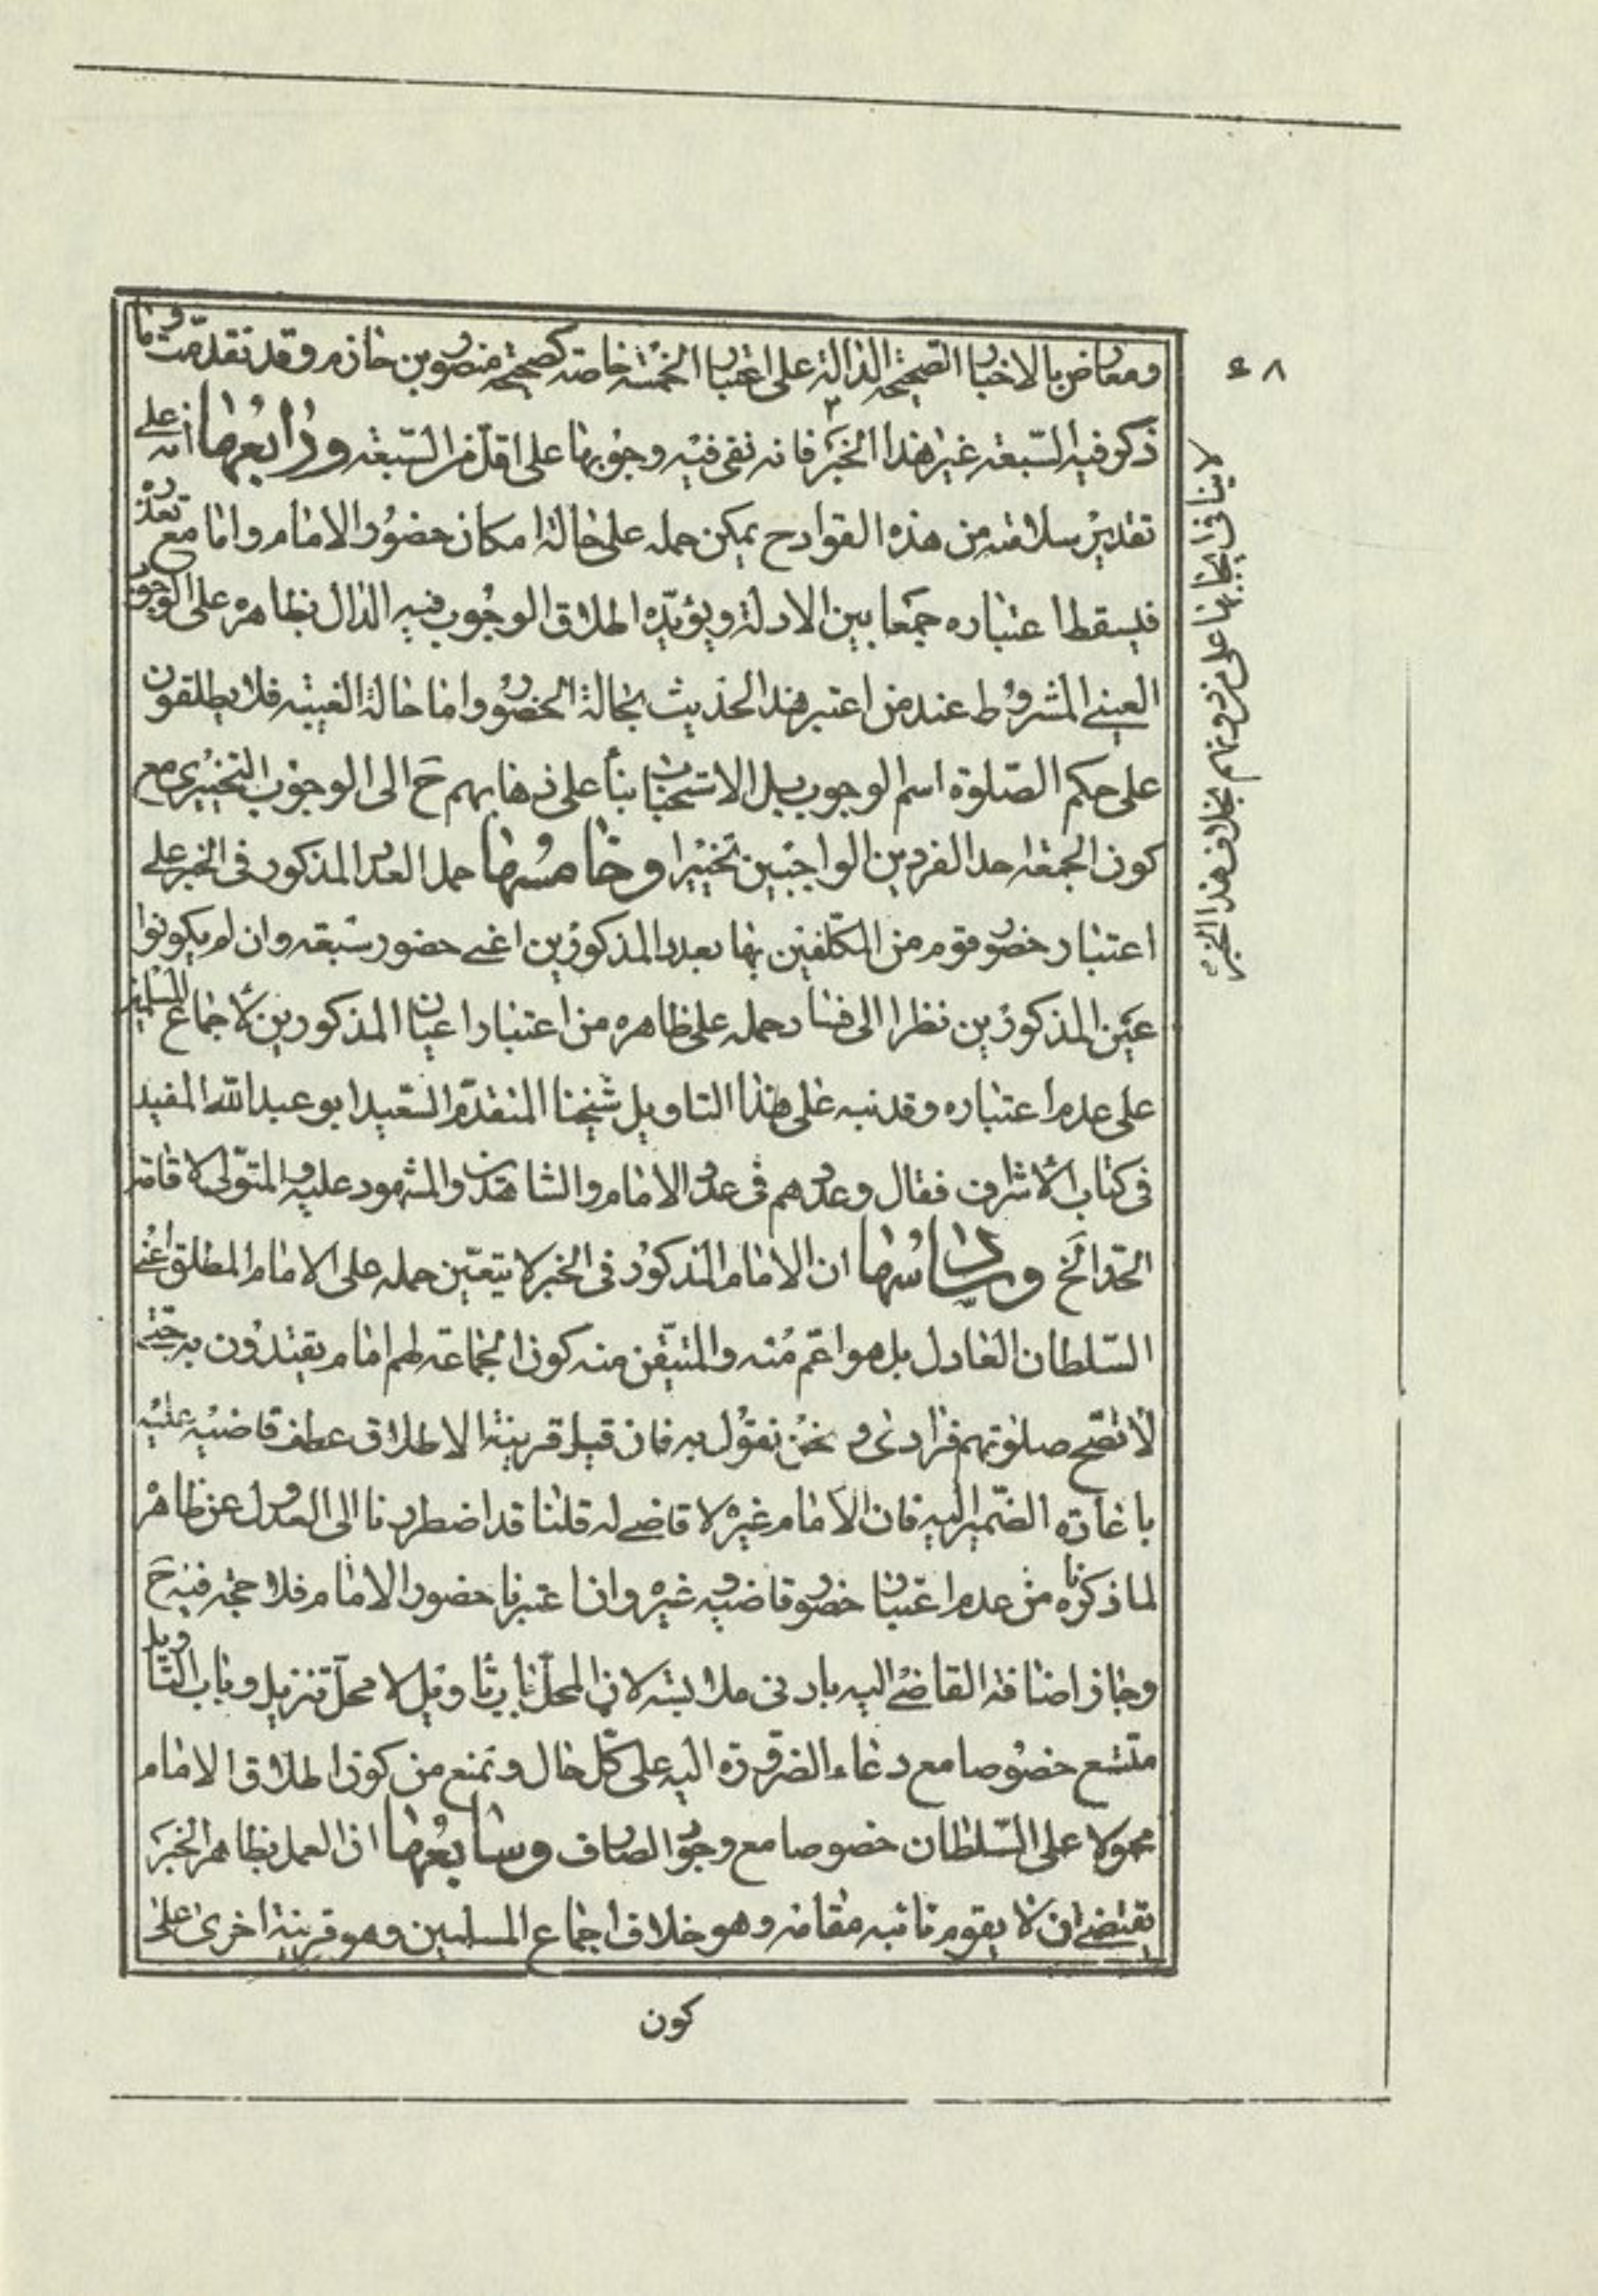 ٤٨
ومعارض بالاخبار الصحيحة الدالة على اعتبار الخمسة خاصة كصحيحة منصور بن حازم وقد تقدمت وما
ذكر فيه السبعة غير هذا الخبر فانه نفى فيه وجوبها على اقل من السبعة ورابعها انه على
تقدير سلامته من هذه القوادح يمكن حمله على حالة امكان حضور الامام واما مع تعذره
فيسقط اعتباره جمعا بين الادلة ويؤيده اطلاق الوجوب فيه الدال بظاهره على الوجوب
العيني المشروط عند من اعتبر هذا الحديث بحالة الحضور واما حالة الغيبة فلا يطلقون
على حكم الصلوة اسم الوجوب بل الاستحباب بناء على ذهابهم ح الى الوجوب التخييرى مع
كون الجمعة احد الفردين الواجبين تخييرا وخامسها حمل العدد المذكور فى الخبر على
اعتبار حضور قوم من المكلفين بها بعدد المذكورين اعني حضور سبعة وان لم يكونوا
عين المذكورين نظرا الى فساد حمله على ظاهره من اعتبار اعيان المذكورين لاجماع المسلمين
على عدم اعتباره وقد نبه على هذا التاويل شيخنا المتقدم السعيد ابو عبد الله المفيد
فى كتاب الاشراف فقال وعددهم فى عدد الامام والشاهدين والمشهود عليه والمتولى لاقامة
الحد الخ وسادسها ان الامام المذكور فى الخبر لا يتعين حمله على الامام المطلق اعني
السلطان العادل بل هو اعم منه والمتيقن منه كون الجماعة لهم امام يقتدون به حتى
لا تصح صلوتهم فرادى و نحن نقول به فان قيل قرينة الاطلاق عطف قاضيه عليه
باعادة الضمير اليه فان الامام غيره لا قاضي له قلنا قد اضطررنا الى العدول عن ظاهره
لما ذكرناه من عدم اعتبار حضور قاضيه وغيره وانا عتبرنا حضور الامام فلا حجة فيه ح
وجاز اضافة القاضي اليه بادنى ملابسة لان المحل باب تاويل لا محل تنزيل وباب التاويل
متسع خصوصا مع دعاء الضرورة اليه على كل حال ونمنع من كون اطلاق الامام
محمولا على السلطان خصوصا مع وجود الصارف وسابعها ان العمل بظاهر الخبر
يقتضى ان لا يقوم نائبه مقامه وهو خلاف اجماع المسلمين وهو قرينة اخرى على
كون
لا ينافى ايجابها على من دونهم بخلاف هذا الخبر